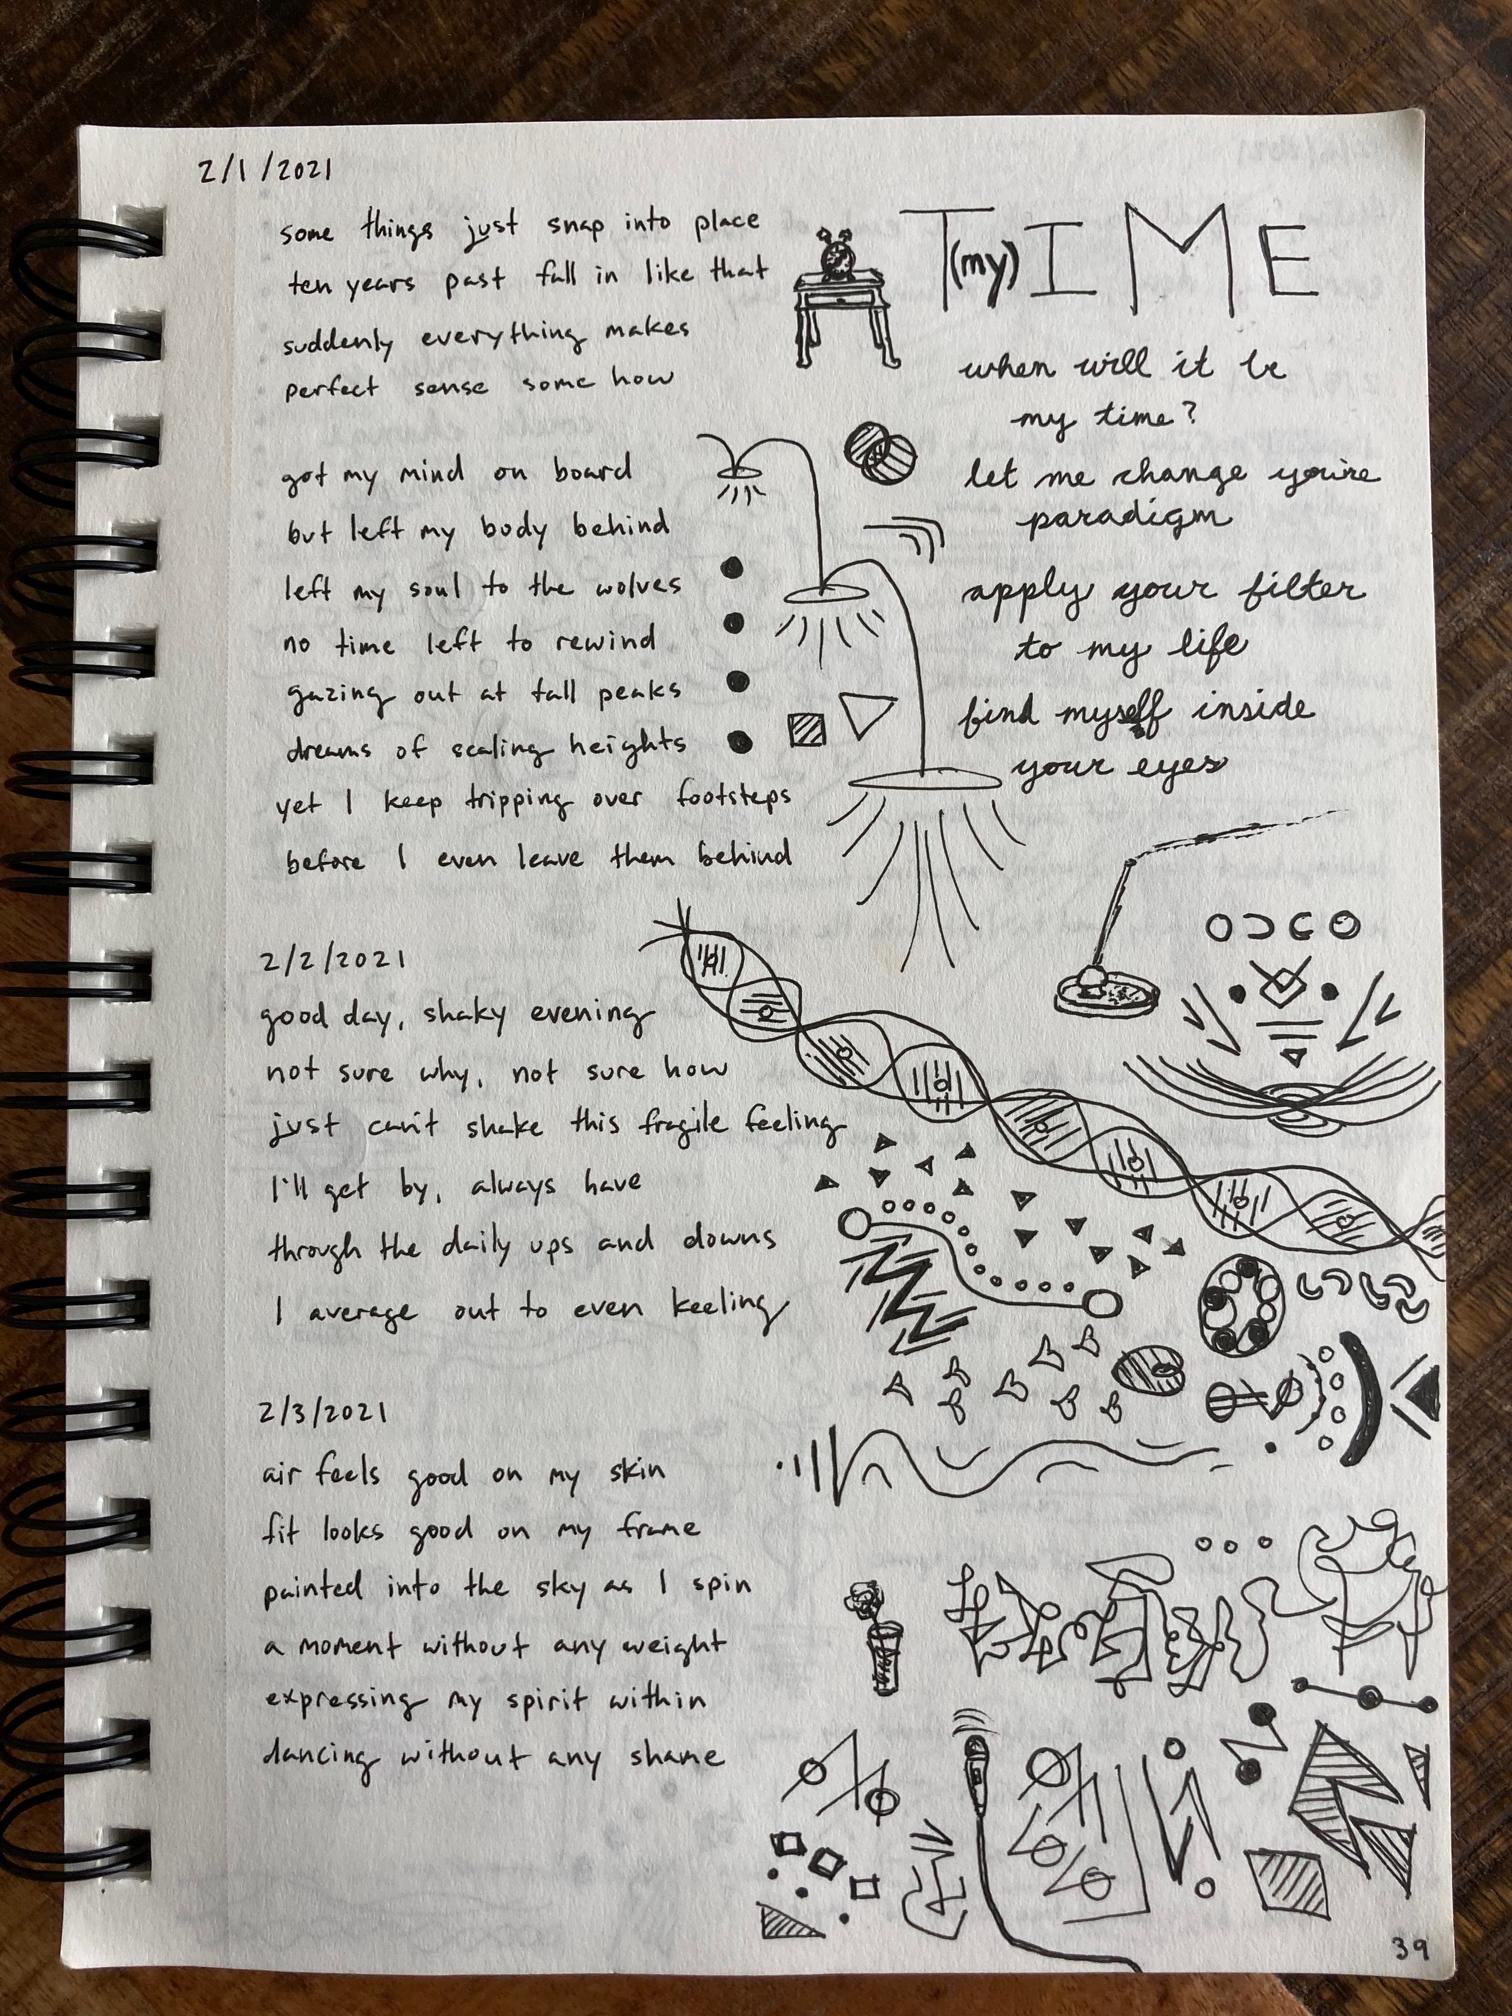 2/1/2021
some things just snap into place
ten years past fall in like that
suddenly everything makes
perfect sense some how
got my mind on board
but left my body behind
left my soul to the wolves
no time left to rewind
gazing out at tall peaks
dreams of scaling heights
yet I keep tripping over footsteps
before I even leave them behind
2/2/2021
good day, shaky evening
not sure why, not sure how
just can't shake this fragile feeling
I'll get by, always have
through the daily ups and downs
I average out to even keeling
2/3/2021
air feels good on my skin
fit looks good on my frame
painted into the sky as I spin
a moment without any weight
expressing my spirit within
dancing without any shame
T(my)IME
when will it be
my time?
let me change you're
paradigm
apply your filter
to my life
find myself inside
your eyes
39